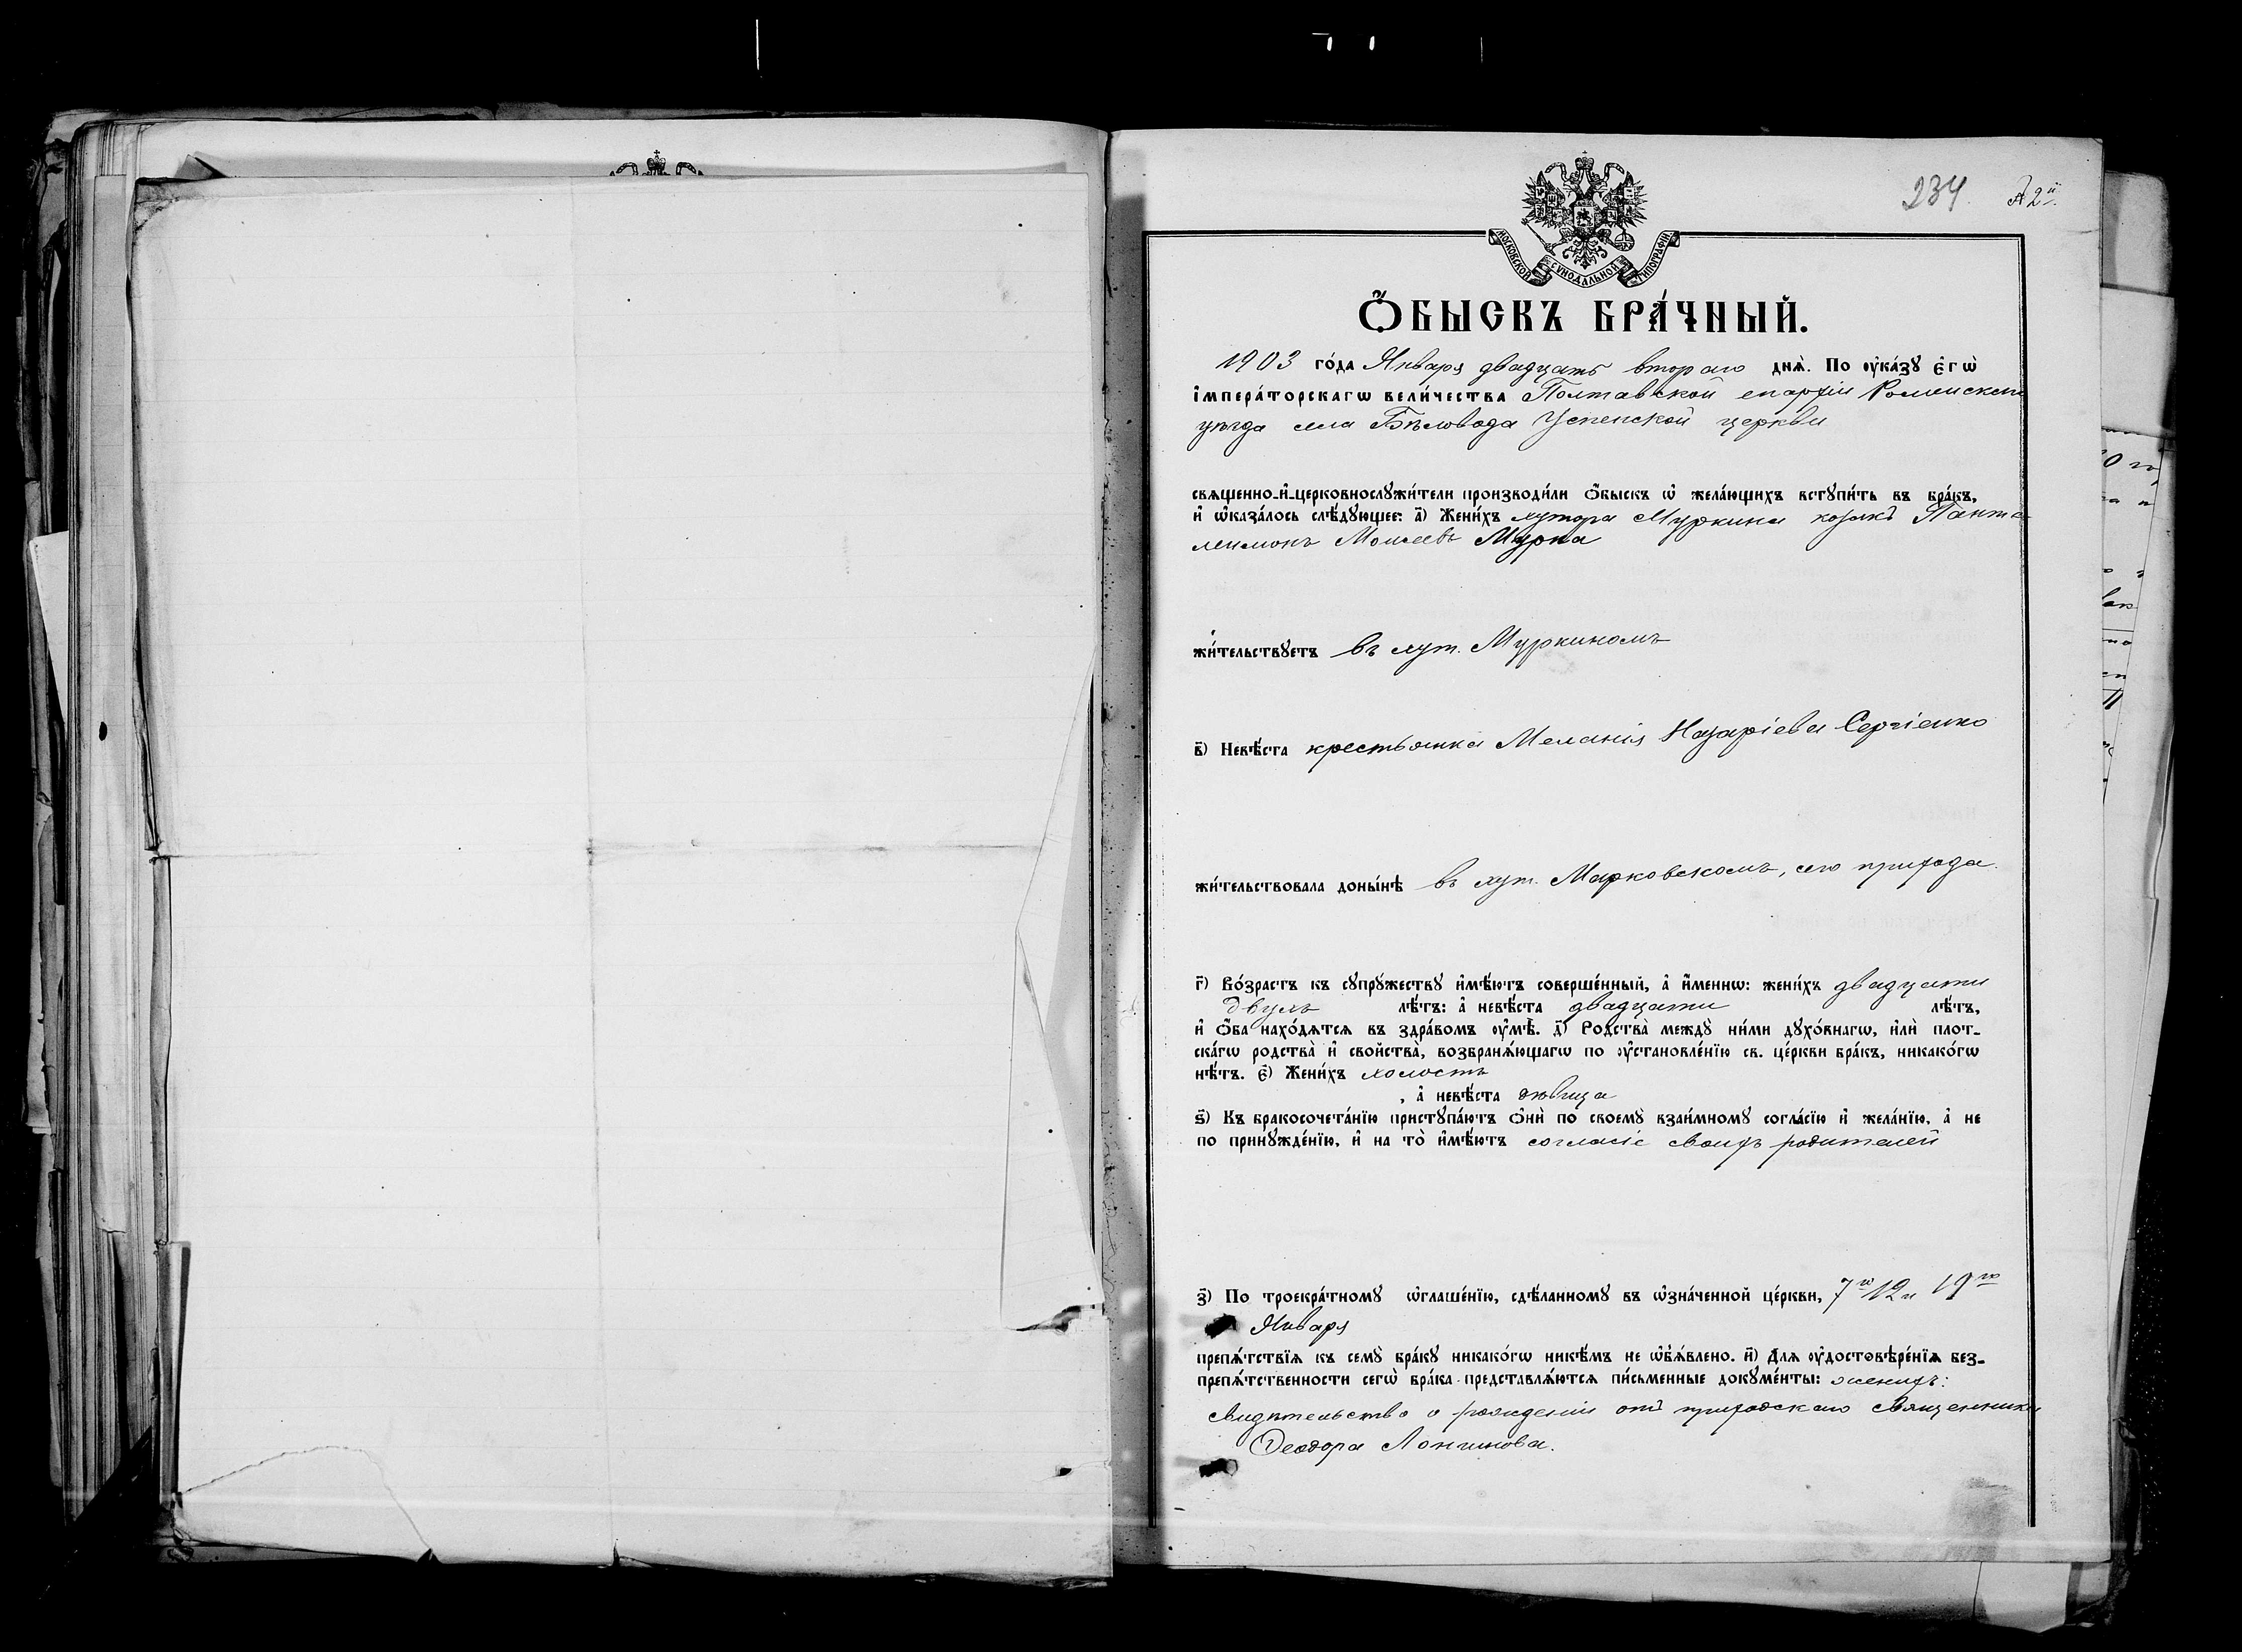 234. № 2й.
МОСКОВСКОЙ СѴНОДАЛЬНОЙ ТИПОГРАФІИ
Ѻ҆БЫСКЪ БРА́ЧНЫЙ.
1903 го́да Января двадцать втораго днѧ̀. По ᲂу҆ка́зꙋ є҆гѡ̀
і҆мпера́торскагѡ вели́чества Полтавской епархіи Роменскаго
уѣзда села Бѣловода Успенской церкви
свѧщенно-и҆-церковнослꙋжи́тели производи́ли ѻ҆́быскъ ѡ҆ жела́ющихъ встꙋпи́ть въ бра́къ,
и҆ ѡ҆каза́лось слѣ́дꙋющее: а҃) Жени́хъ хутора Муркина козакъ Панте
леимонъ Моисеевъ Мурка
жи́тельствꙋетъ въ хут. Муркиномъ
в҃) Невѣ́ста крестьянка Меланія Назаріева Сергіенко
жи́тельствовала доны́нѣ въ хут. Марковскомъ, сего прихода.
г҃) Во́зрастъ къ сꙋпрꙋ́жествꙋ и҆мѣ́ютъ соверше́нный, а҆ и҆́меннѡ: жени́хъ двадцати
двухъ лѣ́тъ: а҆ невѣ́ста двадцати лѣ́тъ,
и҆ ѻ҆́ба нахо́дѧтсѧ въ здра́вомъ ᲂу҆мѣ̀. д҃) Родства̀ междꙋ̀ ни́ми дꙋхо́внагѡ, и҆лѝ плот-
ска́гѡ родства̀ и҆ сво́йства̀, возбранѧ́ющагѡ по ᲂу҆становле́нїю св. це́ркви бра́къ, никако́гѡ
нѣ́тъ. є҃) Жени́хъ холостъ
, а҆ невѣ́ста дѣвица
ѕ҃) Къ бракосочета́нїю пристꙋпа́ютъ ѻ҆нѝ по своемꙋ̀ взаи́мномꙋ согла́сїю и҆ жела́нїю, а҆ не
по принꙋжде́нїю, и҆ на то̀ и҆мѣ́ютъ согласіе своихъ родителей
з҃) По троекра́тномꙋ ѡ҆глаше́нїю, сдѣ́ланномꙋ въ ѡ҆зна́ченной це́ркви, 7го 12 и 19го
Января
препѧ́тствїѧ къ семꙋ̀ бра́кꙋ никако́гѡ никѣ́мъ не ѡ҆б̾ѧ́влено. и҃) Длѧ ᲂу҆достовѣре́нїѧ без-
препѧ́тственности сегѡ̀ бра́ка представлѧ́ютсѧ пи́сьменные докꙋме́нты: женихъ:
свидѣтельство о рожденіи отъ приходскаго Священника
Ѳеодора Лонгинова.